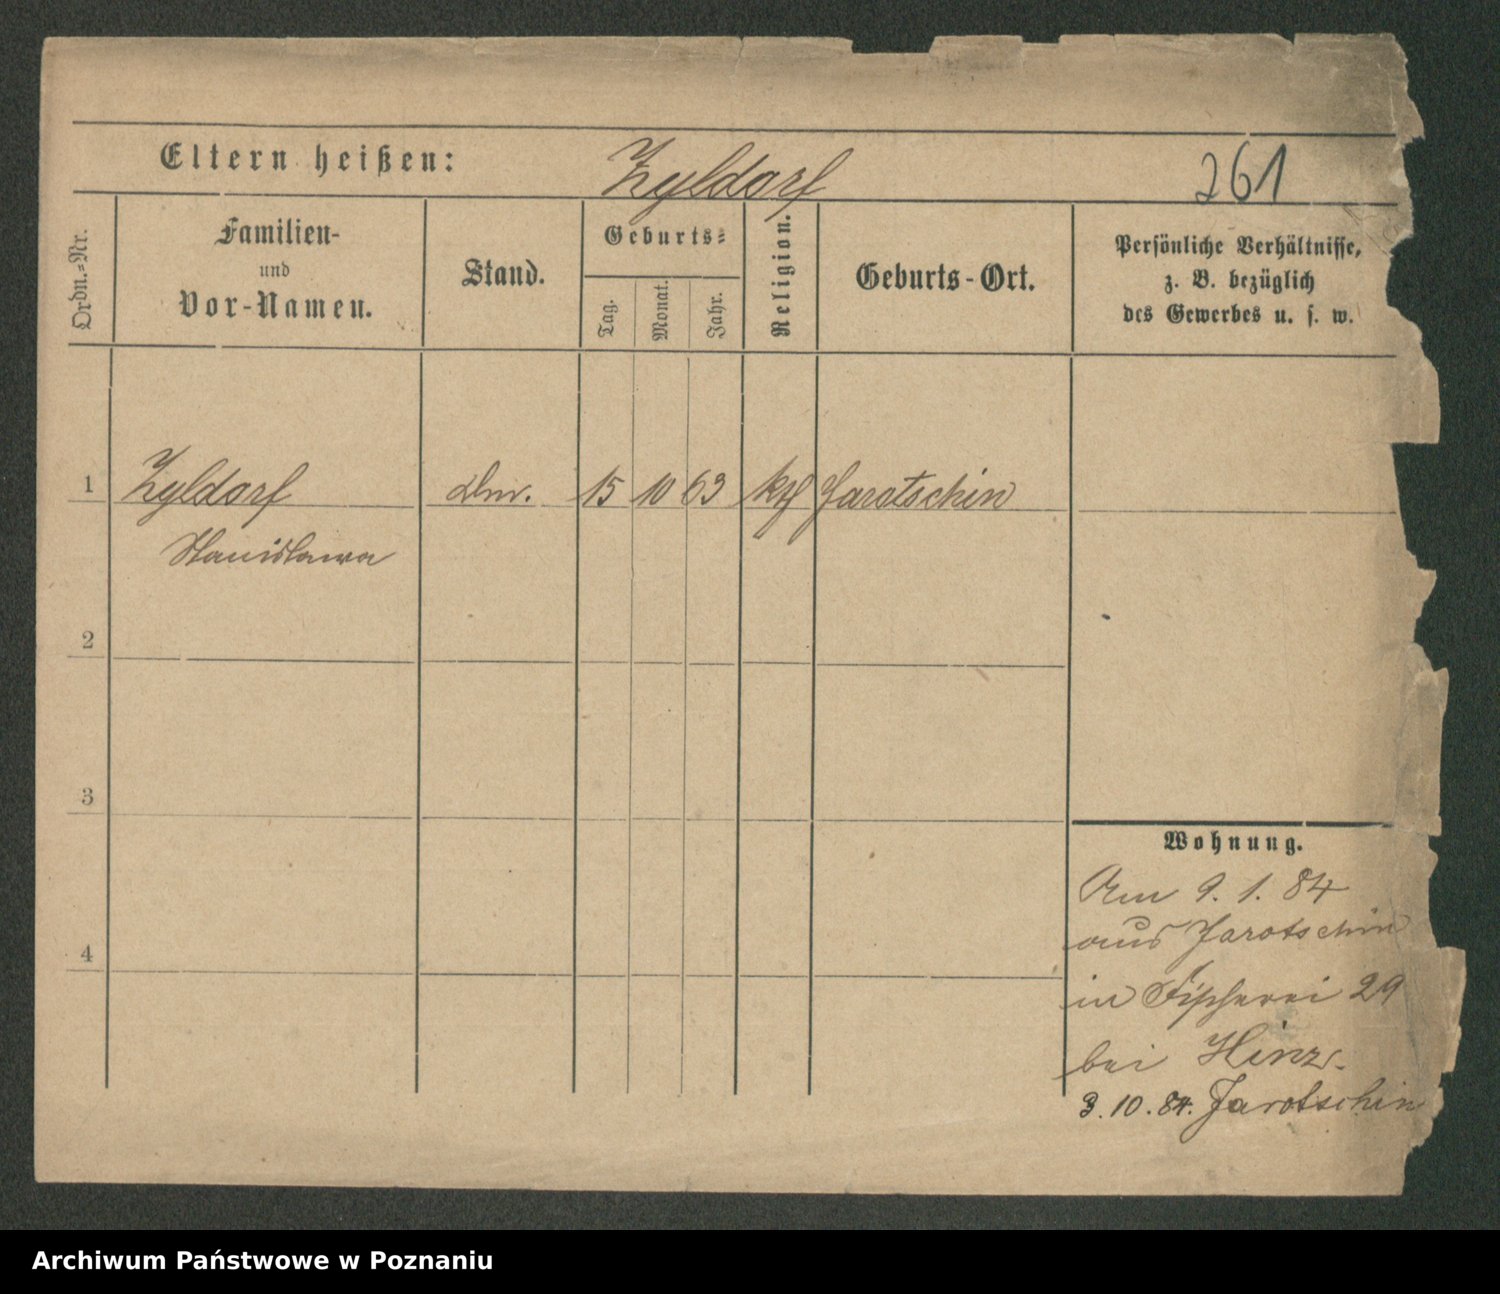 Eltern heißen: Zyldorf 261
Ordn.=Nr.
Familien-
und
Vor-Namen.
Stand.
Geburts=
Tag.
Monat.
Jahr.
Religion.
Geburts-Ort.
Persönliche Verhältnisse,
z. B. bezüglich
des Gewerbes u. s. w.
1 Zyldorf 15 10 63 kth Jarotschin
Stanislawa
2
3
4
Wohnung.
Am 9. 1. 84
aus Jarotschin
in Fischerei 29
bei Hinz.
3. 10. 84. Jarotschin
Archiwum Państwowe w Poznaniu